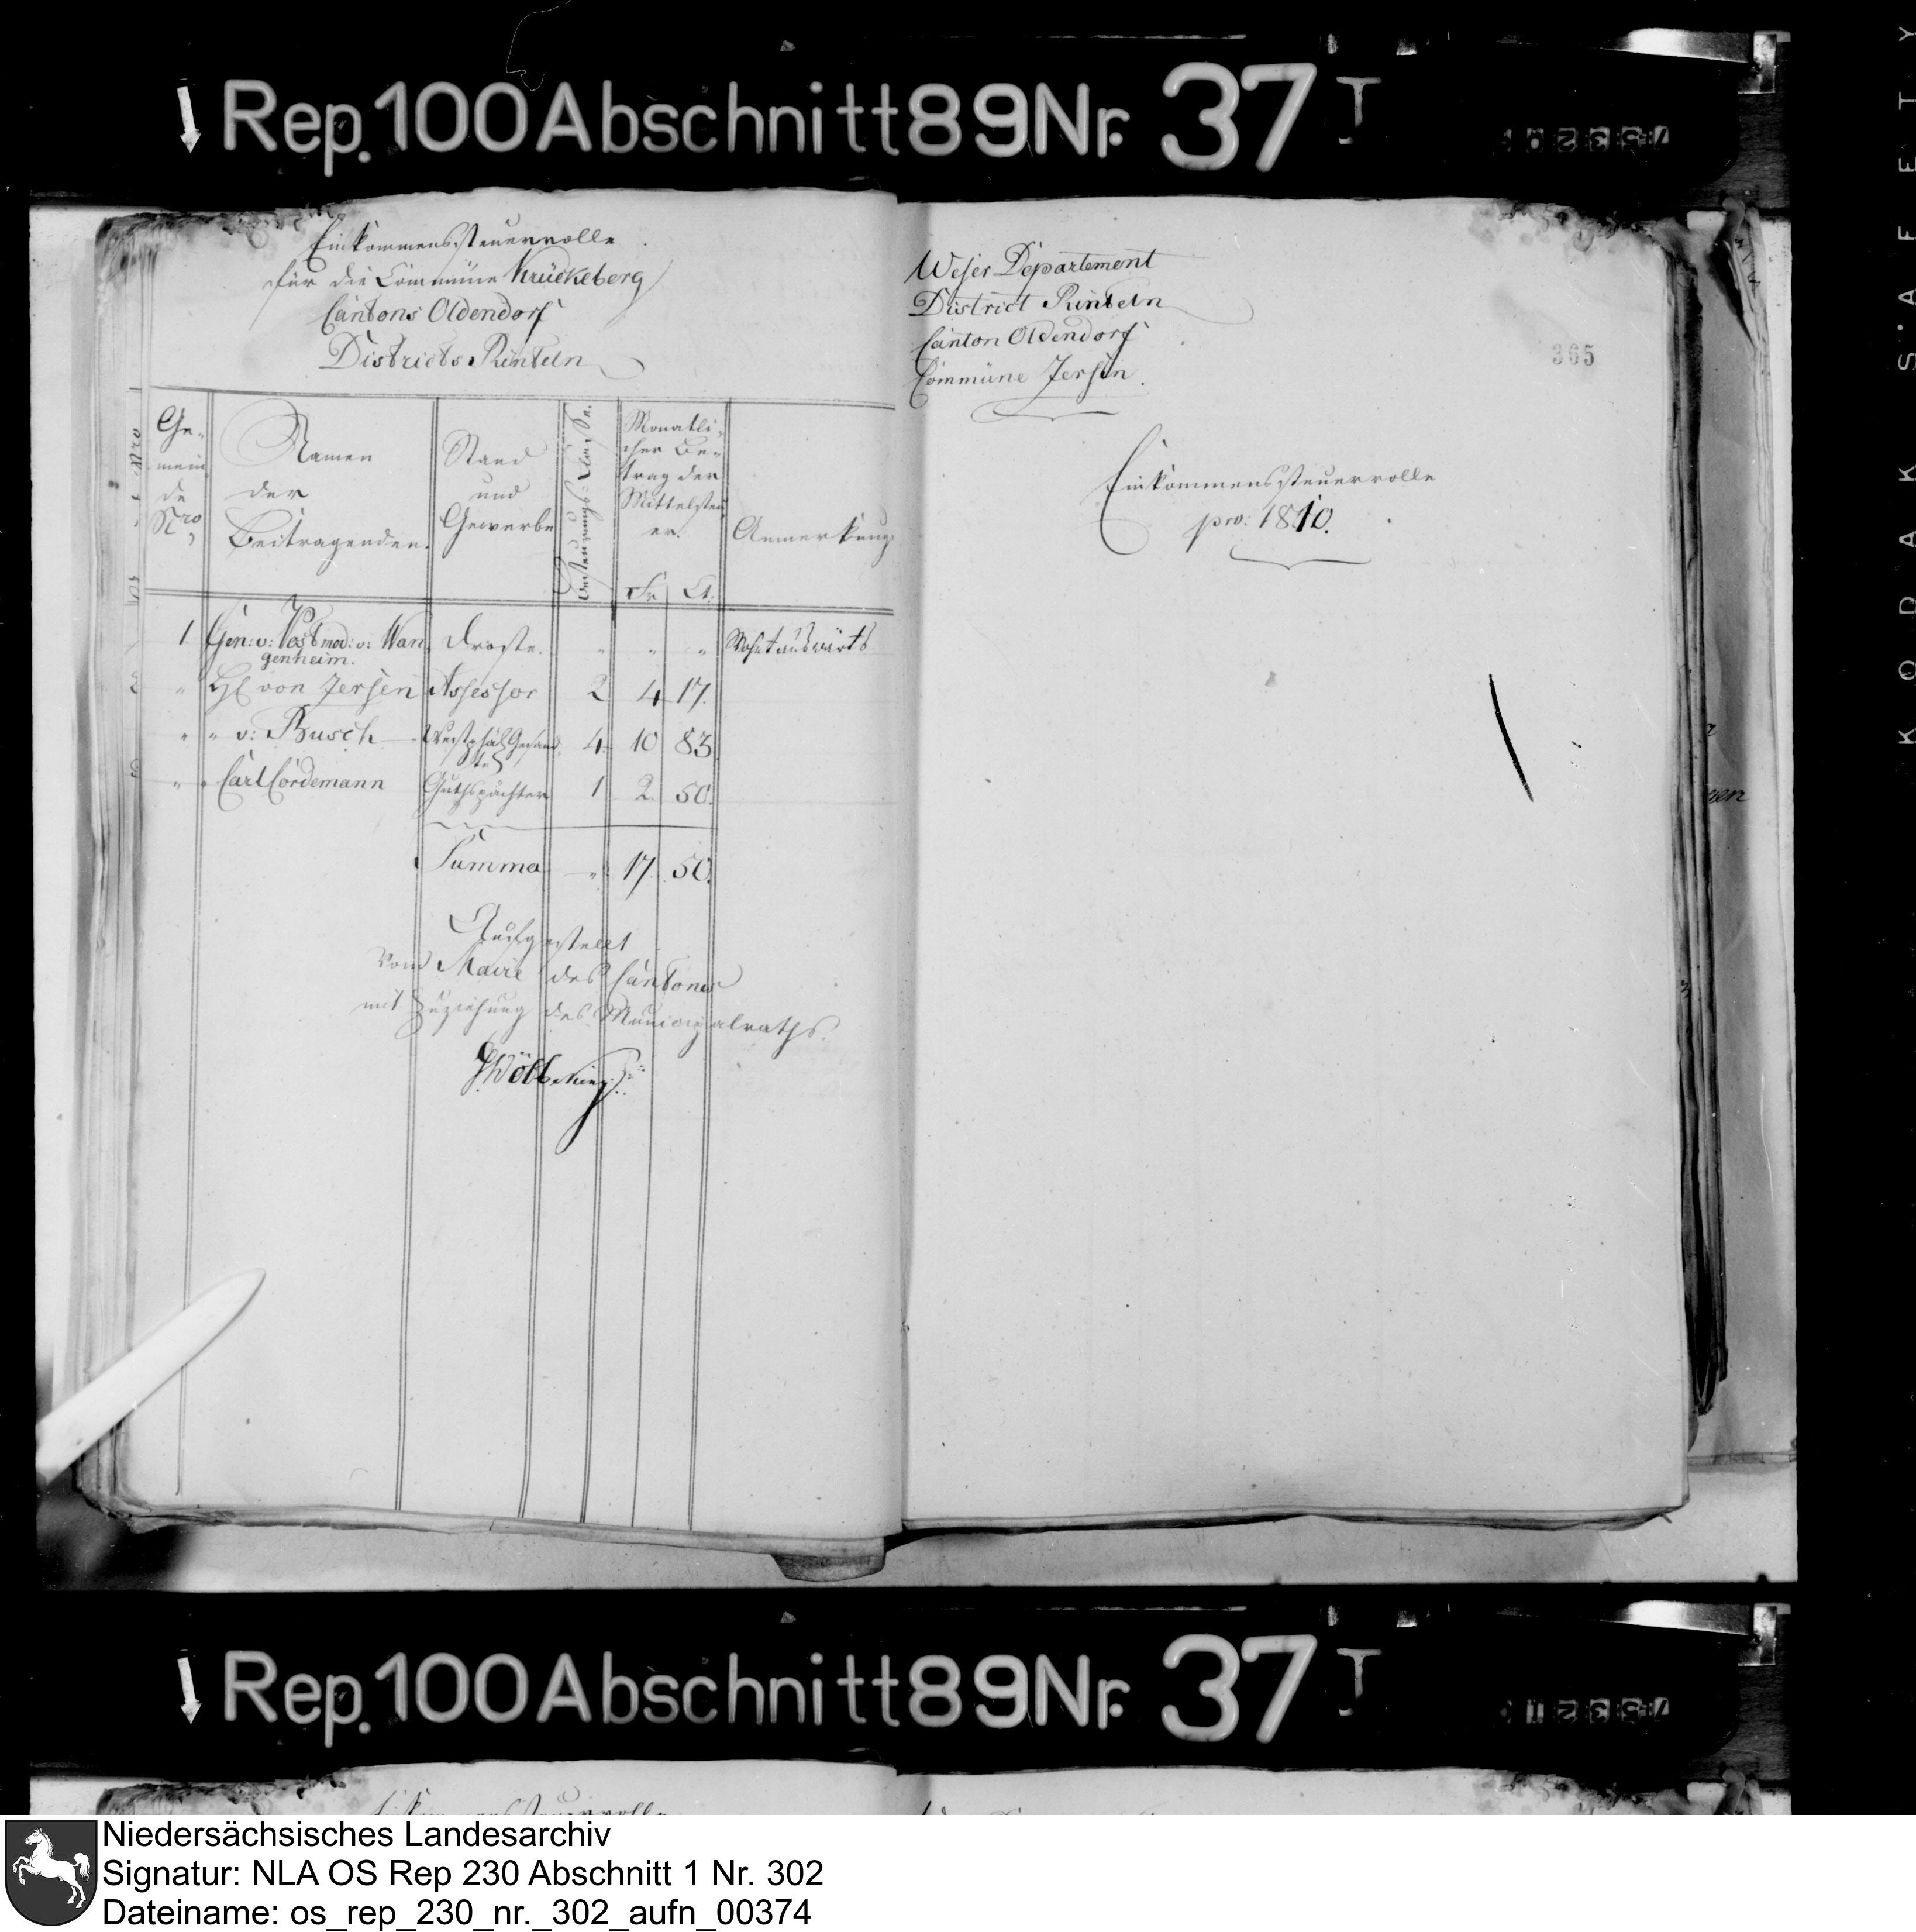 Rep. 100 Abschnitt 89 Nr. 37 I
75320
Einkommenssteuerrolle
für die Commüne Krückeberg
Cantons Oldendorf
Districts Rinteln
Ge-
mein
de
Nro
Namen
der
Beitragenden.
Stand
und
Gewerbe
Besteurungs-Classe.
Monatli-
cher Be-
trag der
Mittelsteu
er.
Fr. Ct.
Anmerkung
1 Gen: v: Post mod: v: Wan Droste. " " " Wohnt auswärts
genheim.
" H von Jersen Assessor 2 4 17.
" " v: Busch Westphäl Gesand 4. 10 83
te
" " Carl Cordemann Guthspächter 1 2 50.
Summa " 17 50.
Aufgestellt
vom Maire des Cantons
mit Zuziehung des Municipalraths.
Weser Departement
District Rinteln
Canton Oldendorf
Commüne Jersen.
365
Einkommenssteuerrolle
pro: 1810.
KODAK SAFETY
Rep. 100 Abschnitt 89 Nr. 37 I
75321
Niedersächsisches Landesarchiv
Signatur: NLA OS Rep 230 Abschnitt 1 Nr. 302
Dateiname: os_rep_230_nr._302_aufn_00374